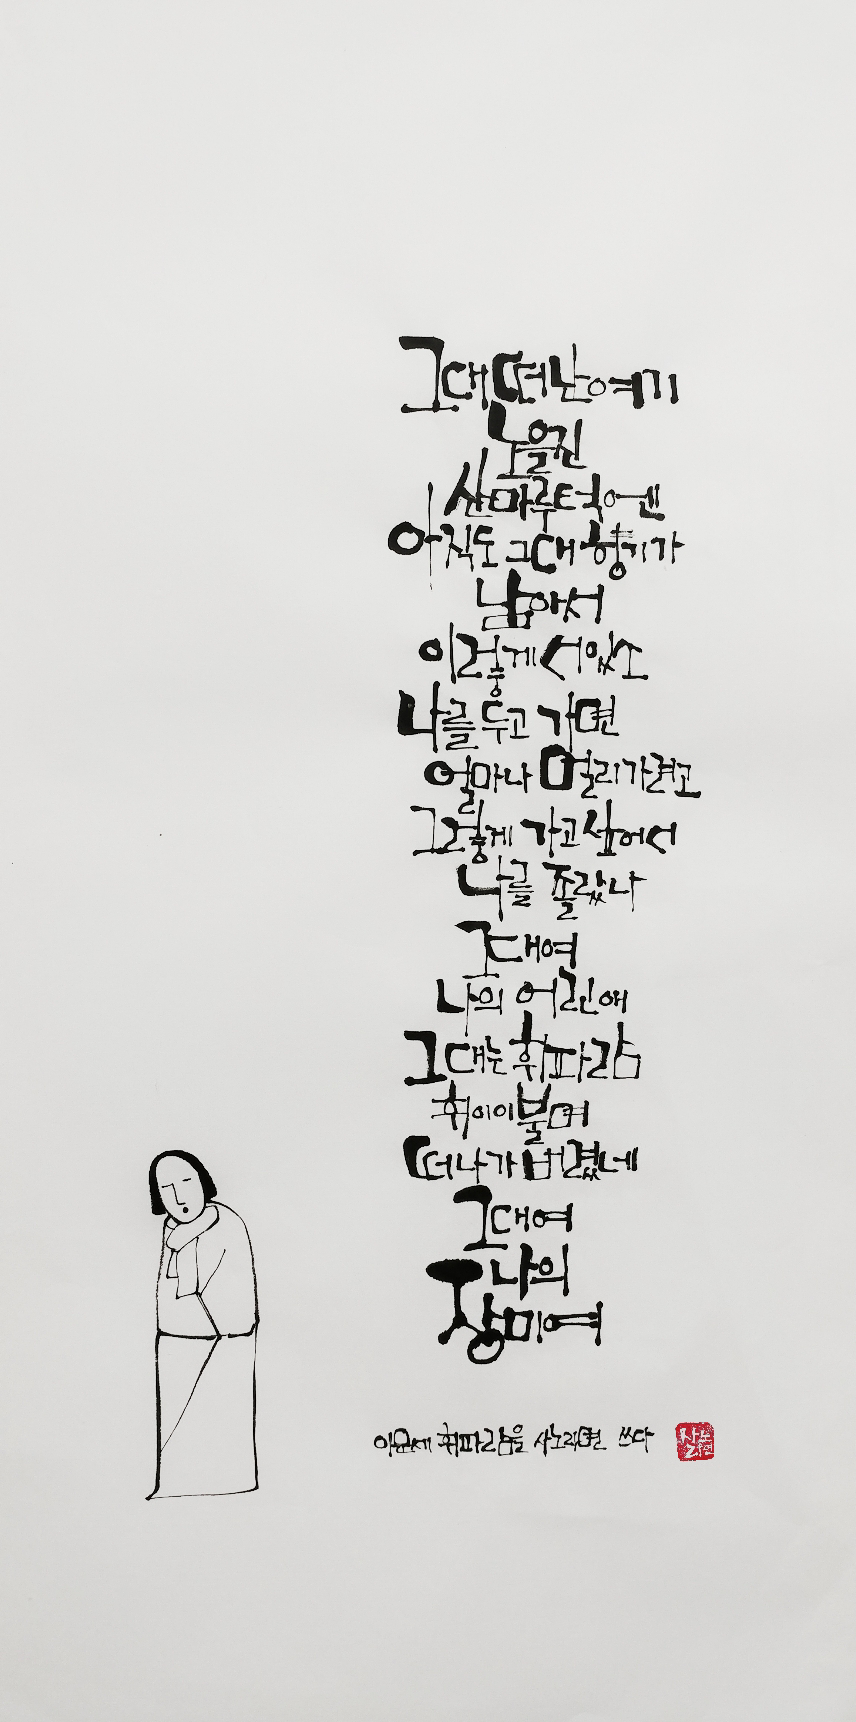 그대 떠난 여기
노을진
산마루턱에
아직도 그대 향기가
남아서
이렇게 서있소
나를 두고 가면
얼마나 멀리 가려고
그렇게 가고 싶어서
나를 졸랐나
그대여
나의 어린애
그대는 휘파람
휘이이 불며
떠나가 버렸네
그대여
나의
장미여
이문세 휘파람을 사노라면 쓰다
사노라면